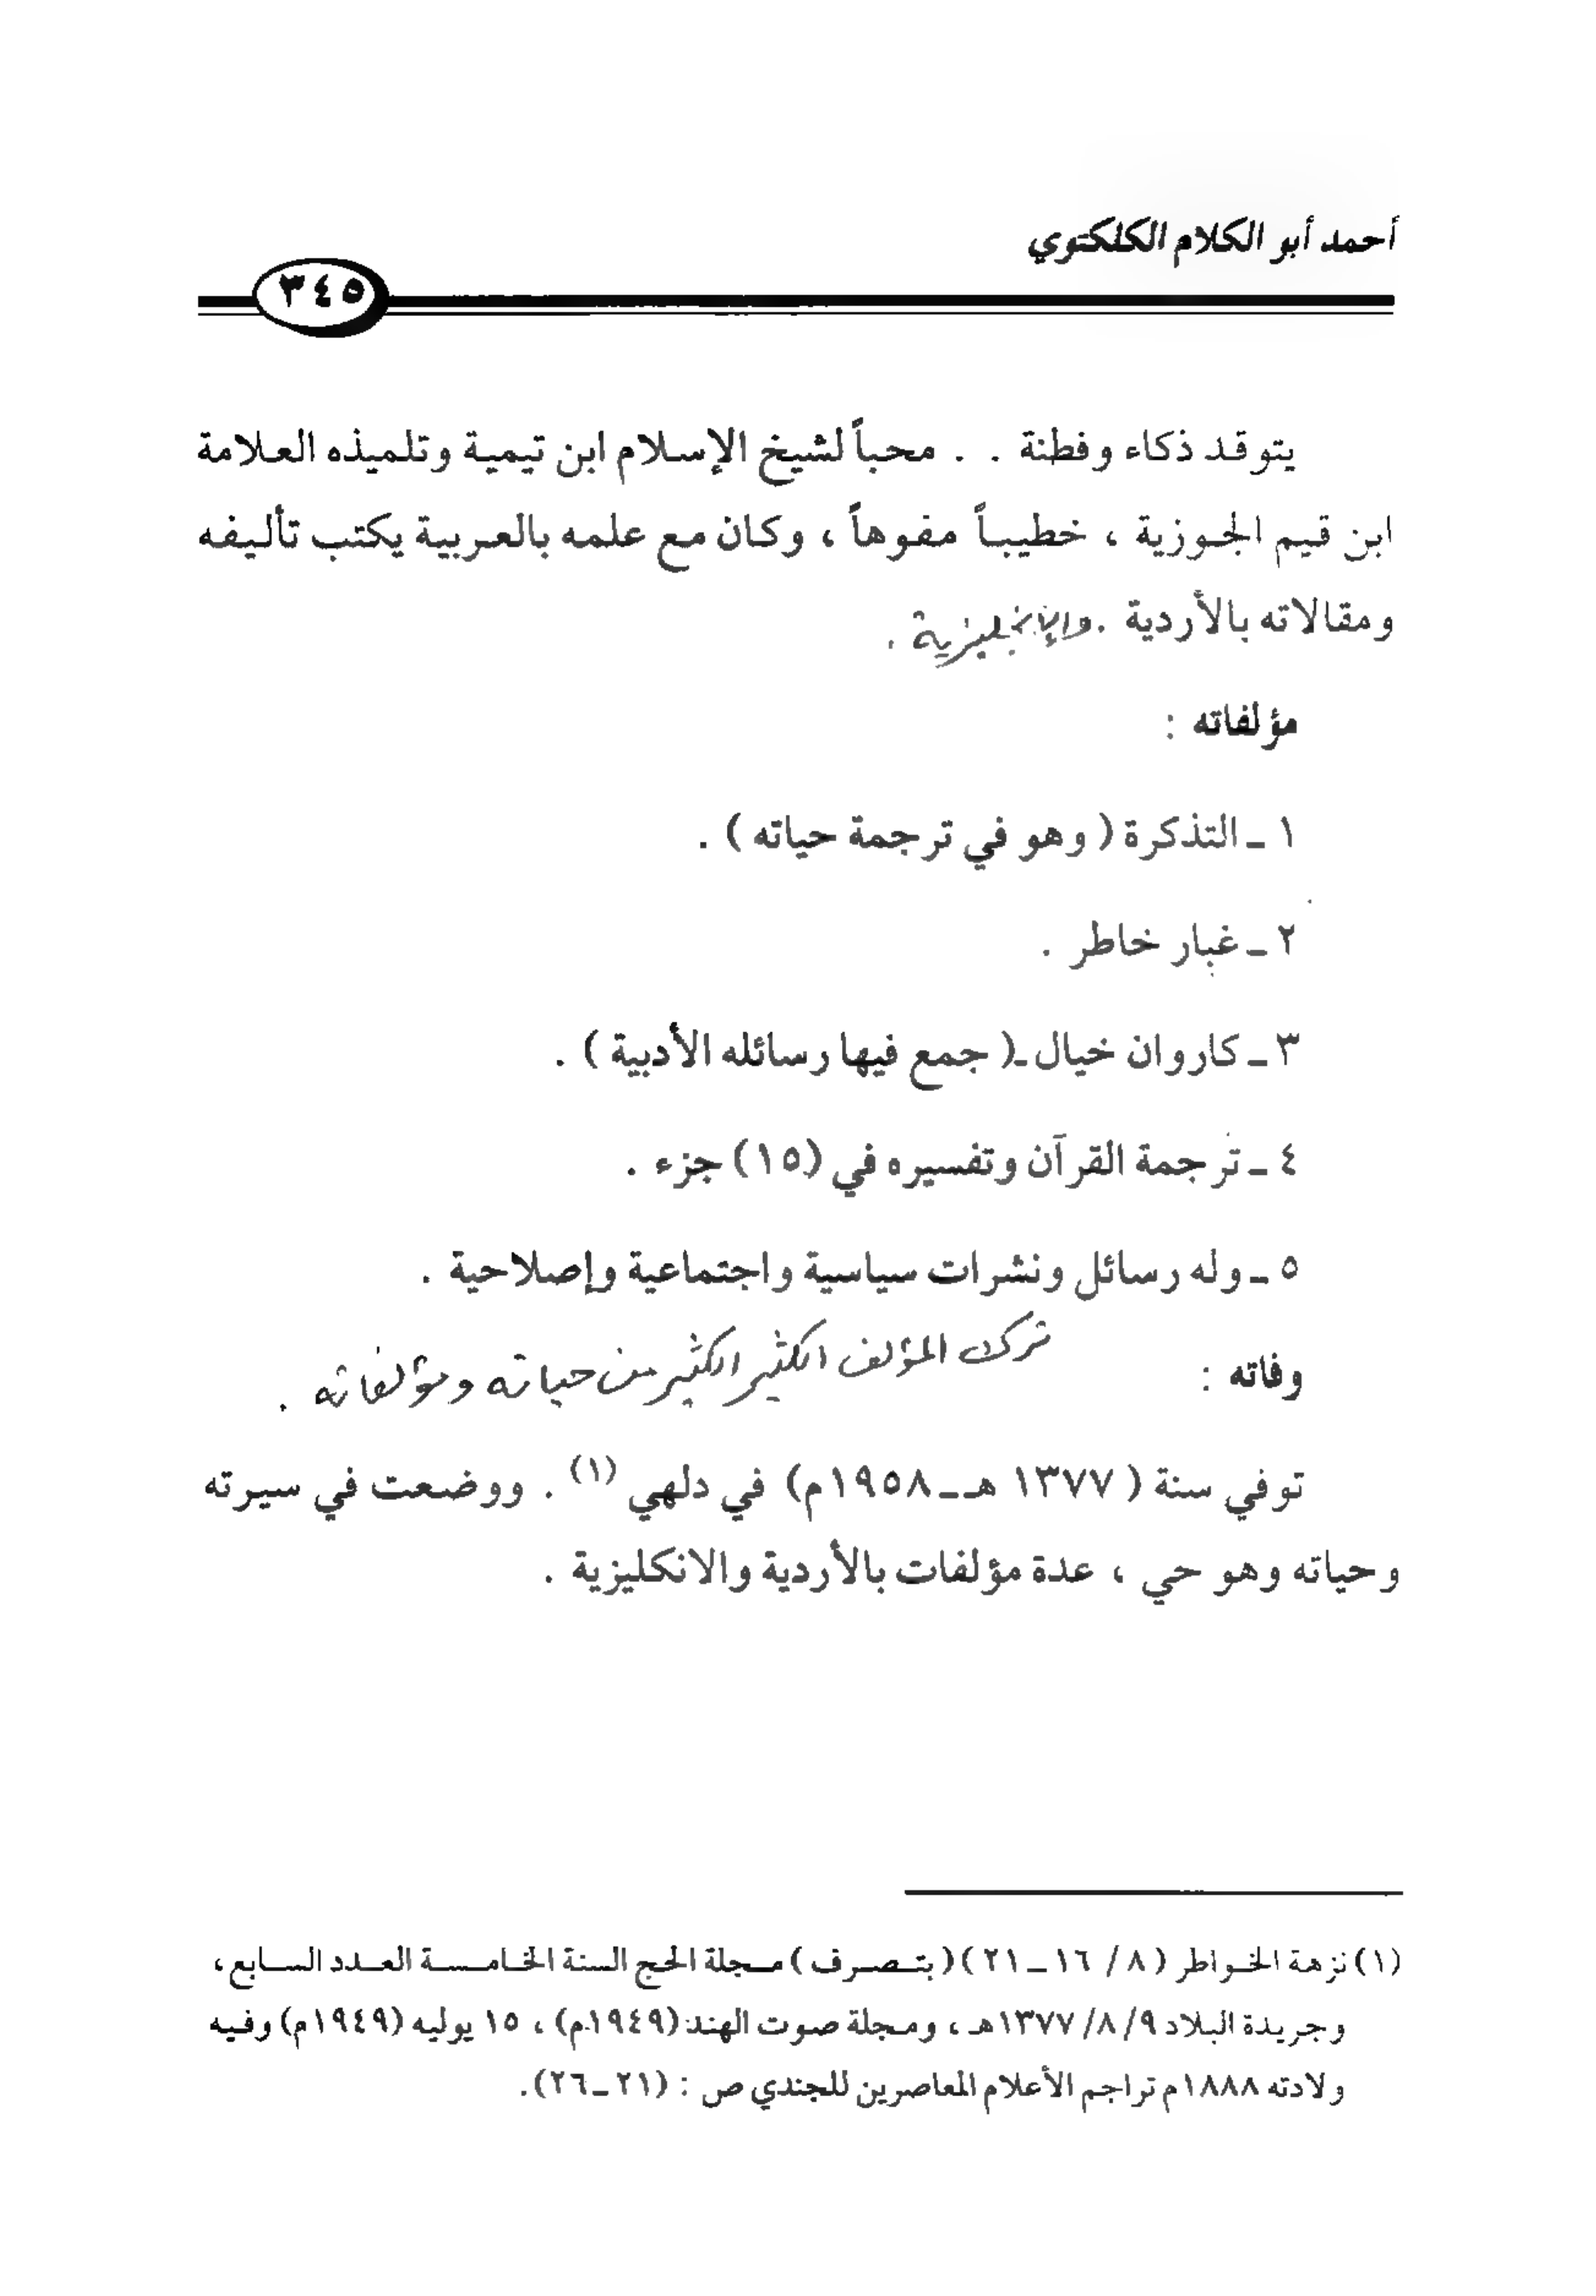 أحمد أبو الكلام الكلكتوي
٣٤٥
يتوقد ذكاء وفطنة . . محباً لشيخ الإسلام ابن تيمية وتلميذه العلامة
ابن قيم الجوزية ، خطيباً مفوهاً ، وكان مع علمه بالعربية يكتب تأليفه
ومقالاته بالأردية . والإنجليزية .
مؤلفاته :
١ ـ التذكرة ( وهو في ترجمة حياته ) .
٢ ـ غبار خاطر .
٣ ـ كاروان خيال ـ ( جمع فيها رسائله الأدبية ) .
٤ ـ ترجمة القرآن وتفسيره في (١٥) جزء .
٥ ـ وله رسائل ونشرات سياسية واجتماعية وإصلاحية .
وفاته : ترك المؤلف الكثير الكثير من حياته ومؤلفاته .
توفي سنة ( ١٣٧٧ هـ ـ ١٩٥٨م) في دلهي (١) . ووضعت في سيرته
وحياته وهو حي ، عدة مؤلفات بالأردية والانكليزية .
(١) نزهة الخواطر ( ٨ / ١٦ ـ ٢١ ) ( بتصرف ) مجلة الحج السنة الخامسة العدد السابع ،
وجريدة البلاد ٩/ ٨/ ١٣٧٧هـ ، ومجلة صوت الهند (١٩٤٩م) ، ١٥ يوليه (١٩٤٩م) وفيه
ولادته ١٨٨٨م تراجم الأعلام المعاصرين للجندي ص : (٢١ ـ ٢٦).